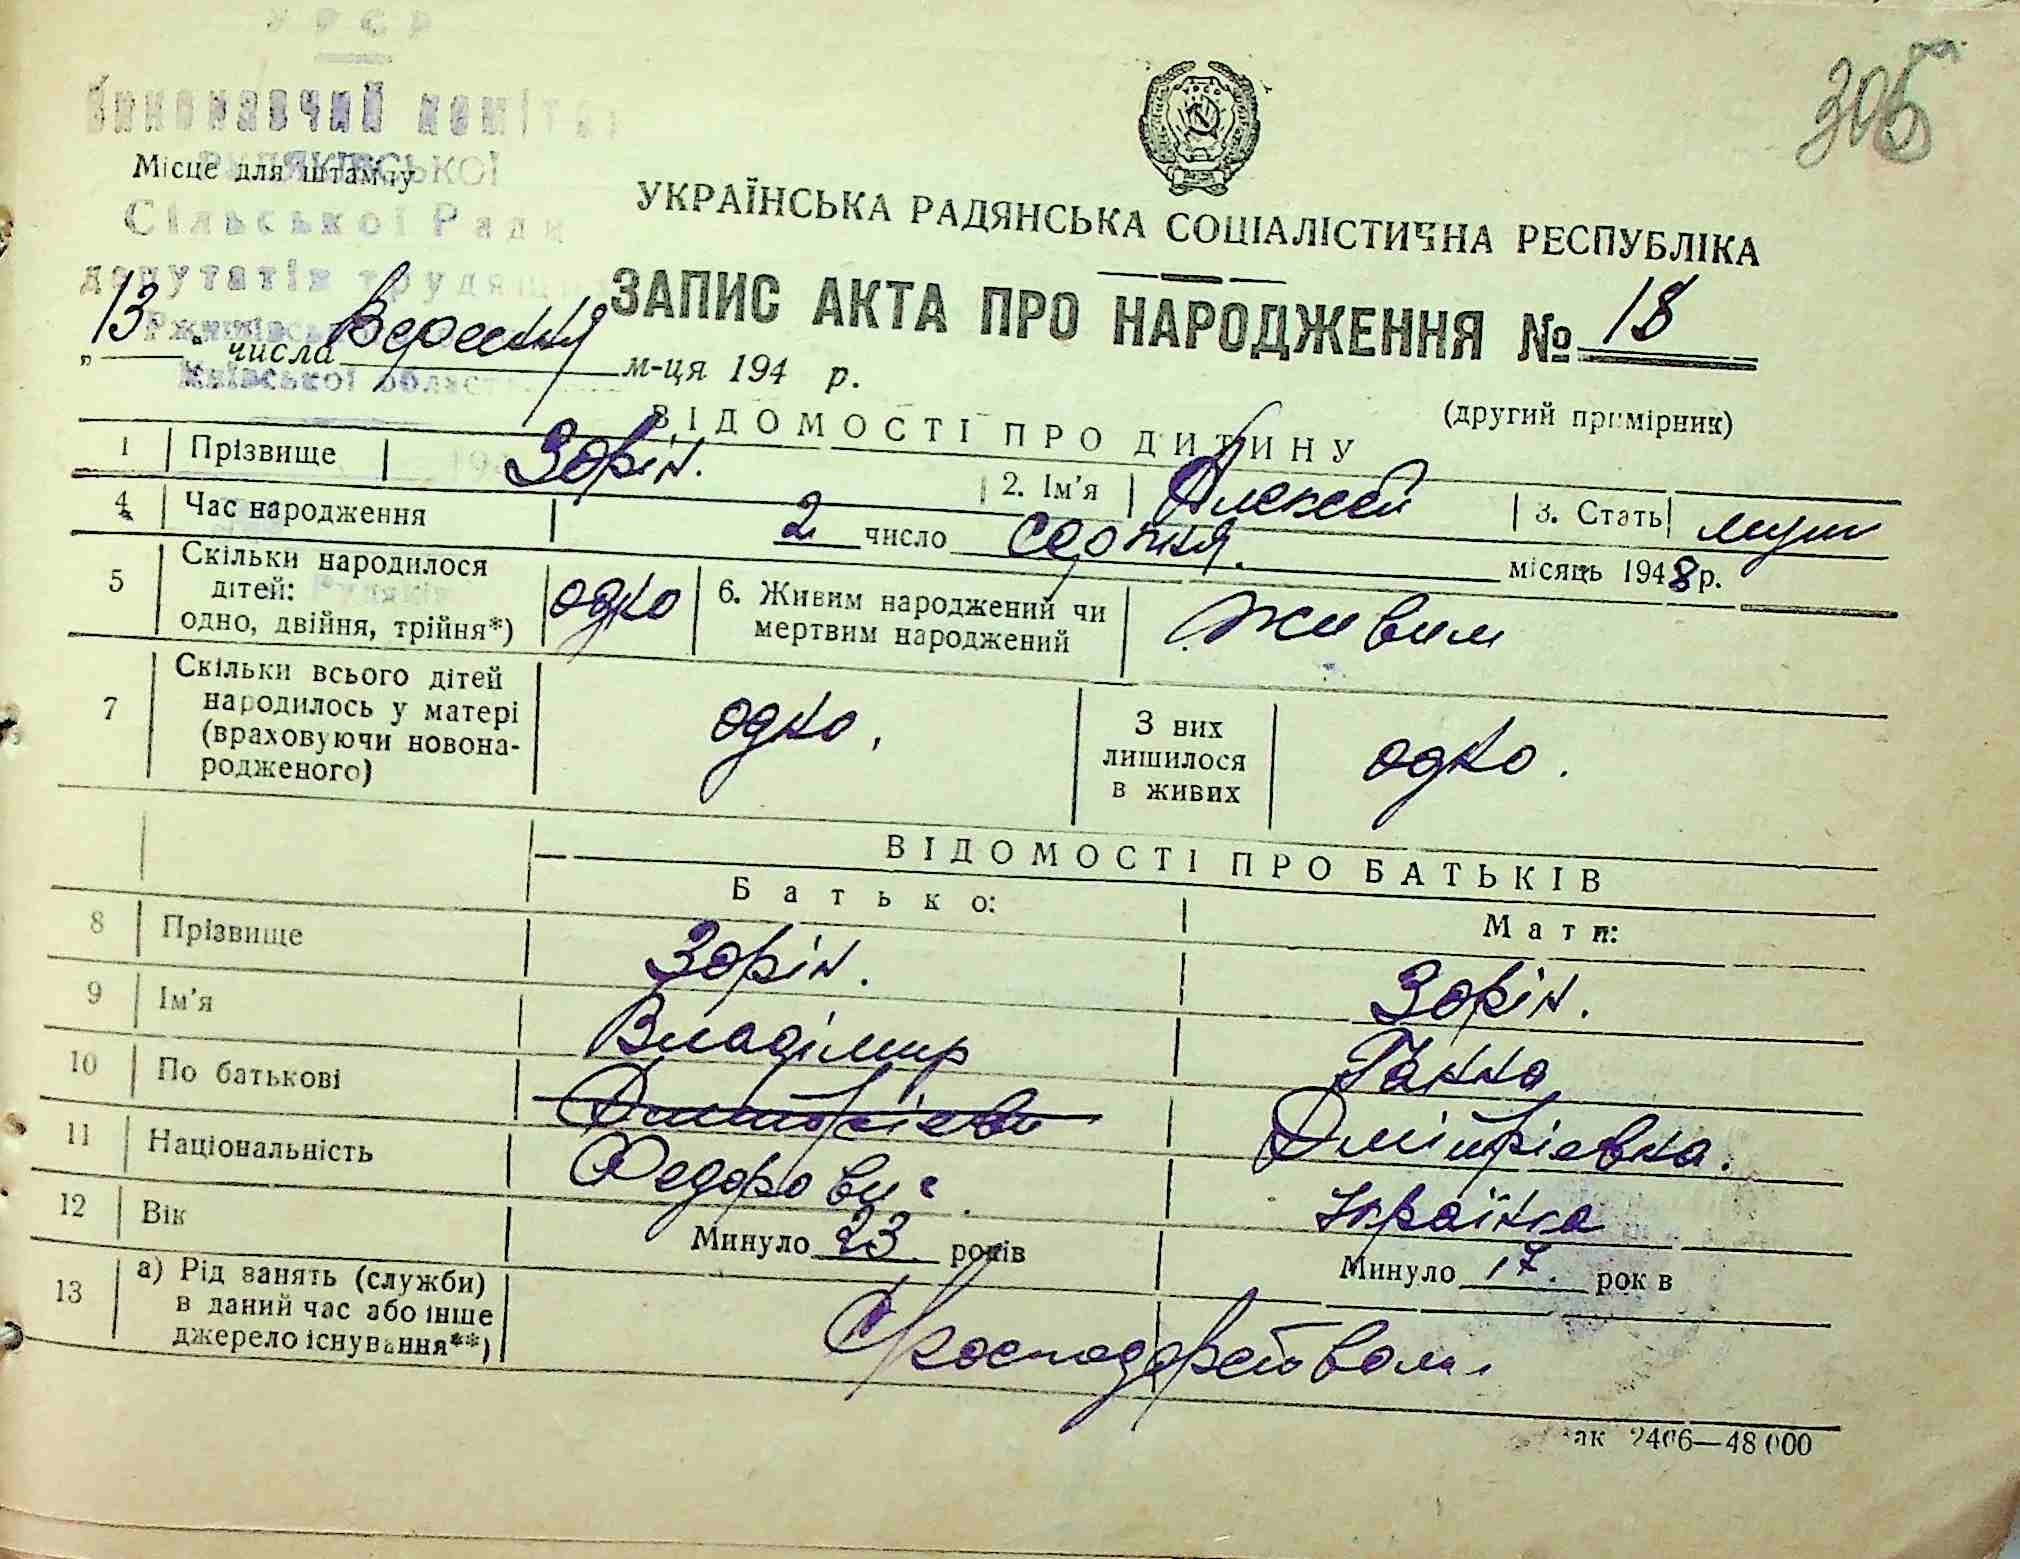 УРСР
Виконавчий комітет
Місце для штампу
Сільської Ради
депутатів трудящих
Київської області
305
УКРАЇНСЬКА РАДЯНСЬКА СОЦІАЛІСТИЧНА РЕСПУБЛІКА
ЗАПИС АКТА ПРО НАРОДЖЕННЯ № 18
„13“ числа Вересня м-ця 194 р.
(другий примірник)
ВІДОМОСТІ ПРО ДИТИНУ
1 Прізвище Зорін. 2. Ім'я Алексей 3. Стать муж
4 Час народження 2 число серпня. місяць 1948 р.
5 Скільки народилося дітей: одно, двійня, трійня*) одно 6. Живим народжений чи мертвим народжений живим
7 Скільки всього дітей народилось у матері (враховуючи новона-родженого) одно, З них лишилося в живих одно.
ВІДОМОСТІ ПРО БАТЬКІВ
Батько: Мати:
8 Прізвище Зорін. Зорін.
9 Ім'я Владімир Ганна
10 По батькові Дмитрієви Дмітрієвна.
11 Національність Федорович. Українка
12 Вік Минуло 23 років Минуло 17. років
13 а) Рід занять (служби) в даний час або інше джерело існування**) господарством
Зак 2406—48 000